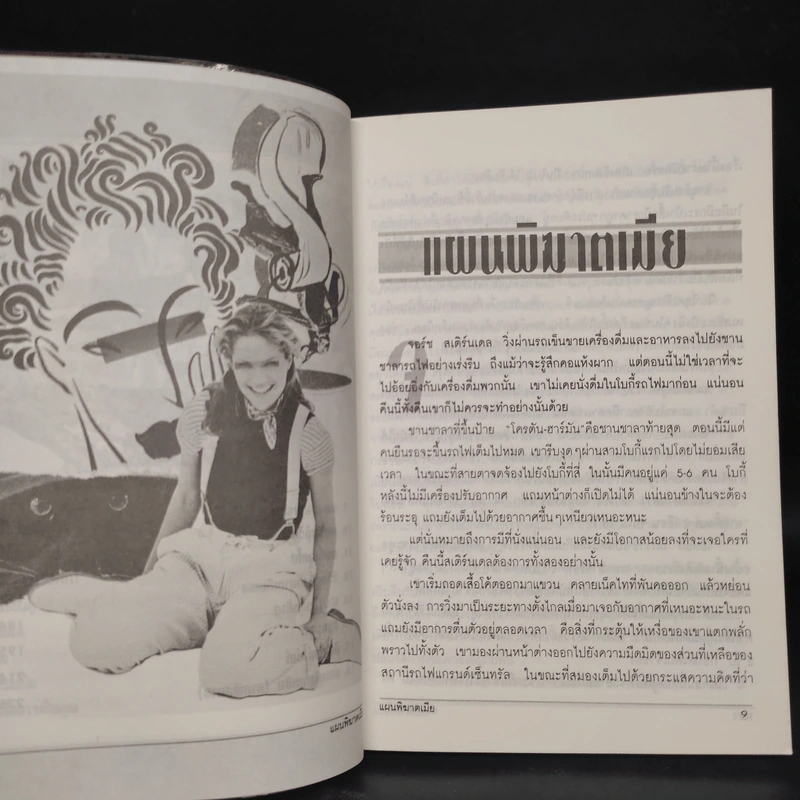 แผนพิฆาตเมีย
จอร์ช สเติร์นเดล วิ่งผ่านรถเข็นขายเครื่องดื่มและอาหารลงไปยังชาน
ชาลารถไฟอย่างเร่งรีบ ถึงแม้ว่าจะรู้สึกคอแห้งผาก แต่ตอนนี้ไม่ใช่เวลาที่จะ
ไปอ้อยอิ่งกับเครื่องดื่มพวกนั้น เขาไม่เคยนั่งดื่มในโบกี้รถไฟมาก่อน แน่นอน
คืนนี้ทั้งคืนเขาก็ไม่ควรจะทำอย่างนั้นด้วย
ชานชาลาที่ขึ้นป้าย "โครตัน-ฮาร์มัน"คือชานชาลาท้ายสุด ตอนนี้มีแต่
คนยืนรอจะขึ้นรถไฟเต็มไปหมด เขารีบงุดๆผ่านสามโบกี้แรกไปโดยไม่ยอมเสีย
เวลา ในขณะที่สายตาจดจ้องไปยังโบกี้ที่สี่ ในนั้นมีคนอยู่แค่ 5-6 คน โบกี้
หลังนี้ไม่มีเครื่องปรับอากาศ แถมหน้าต่างก็เปิดไม่ได้ แน่นอนข้างในจะต้อง
ร้อนระอุ แถมยังเต็มไปด้วยอากาศชื้นๆเหนียวเหนอะหนะ
แต่นั่นหมายถึงการมีที่นั่งแน่นอน และยังมีโอกาสน้อยลงที่จะเจอใครที่
เคยรู้จัก คืนนี้สเติร์นเดลต้องการทั้งสองอย่างนั้น
เขาเริ่มถอดเสื้อโค้ตออกมาแขวน คลายเน็คไทที่พันคอออก แล้วหย่อน
ตัวนั่งลง การวิ่งมาเป็นระยะทางตั้งไกลเมื่อมาเจอกับอากาศที่เหนอะหนะในรถ
แถมยังมีอาการตื่นตัวอยู่ตลอดเวลา คือสิ่งที่กระตุ้นให้เหงื่อของเขาแตกพลั่ก
พราวไปทั้งตัว เขามองผ่านหน้าต่างออกไปยังความมืดมิดของส่วนที่เหลือของ
สถานีรถไฟแกรนด์เซ็นทรัล ในขณะที่สมองเต็มไปด้วยกระแสความคิดที่ว่า
แผนพิฆาตเมีย
9
แผนพิฆาตเมีย